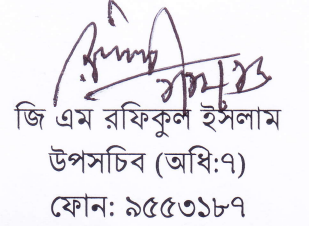 জি এম রফিকুল ইসলাম
উপসচিব (অধি:৭)
ফোন: ৯৫৫৩১৮৭